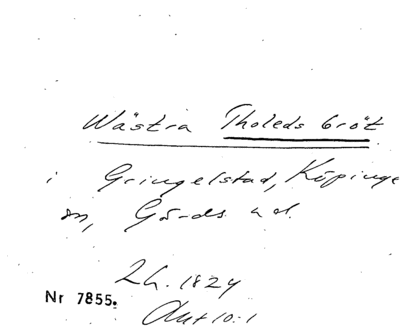 Wästra Tholeds bröt
i Gringelstad, Köpinge
sn, Gärds hd.
2h. 1824
Nr 7855.
Akt 10:1